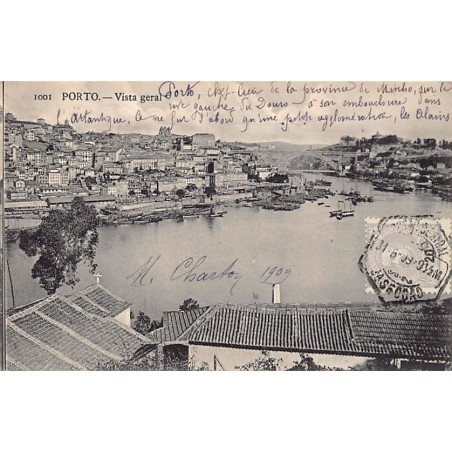 1001 PORTO. — Vista geral
Porto, chef lieu de la province de Minho, sur la
rive gauche du Douro à son embouchure dans
l'Atlantique, ne fut d'abord qu'une petite agglomération, les Alains
M. Charton 1909